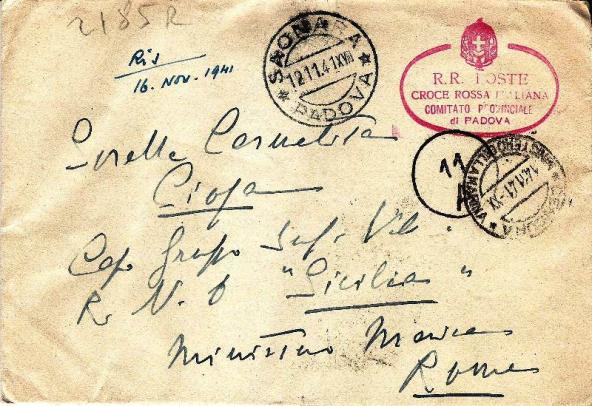 2185 R
Ris
16. Nov. 1941
SAONARA
12 11.41 XVIII
* PADOVA *
R.R. POSTE
CROCE ROSSA ITALIANA
COMITATO PROVINCIALE
di PADOVA
11
R
14.11.41-XX
CENSURA
Sorella Carmelita
Capo Gruppo Inf. Vol.
R. N. O "Sicilia"
Ministero Marina
Roma